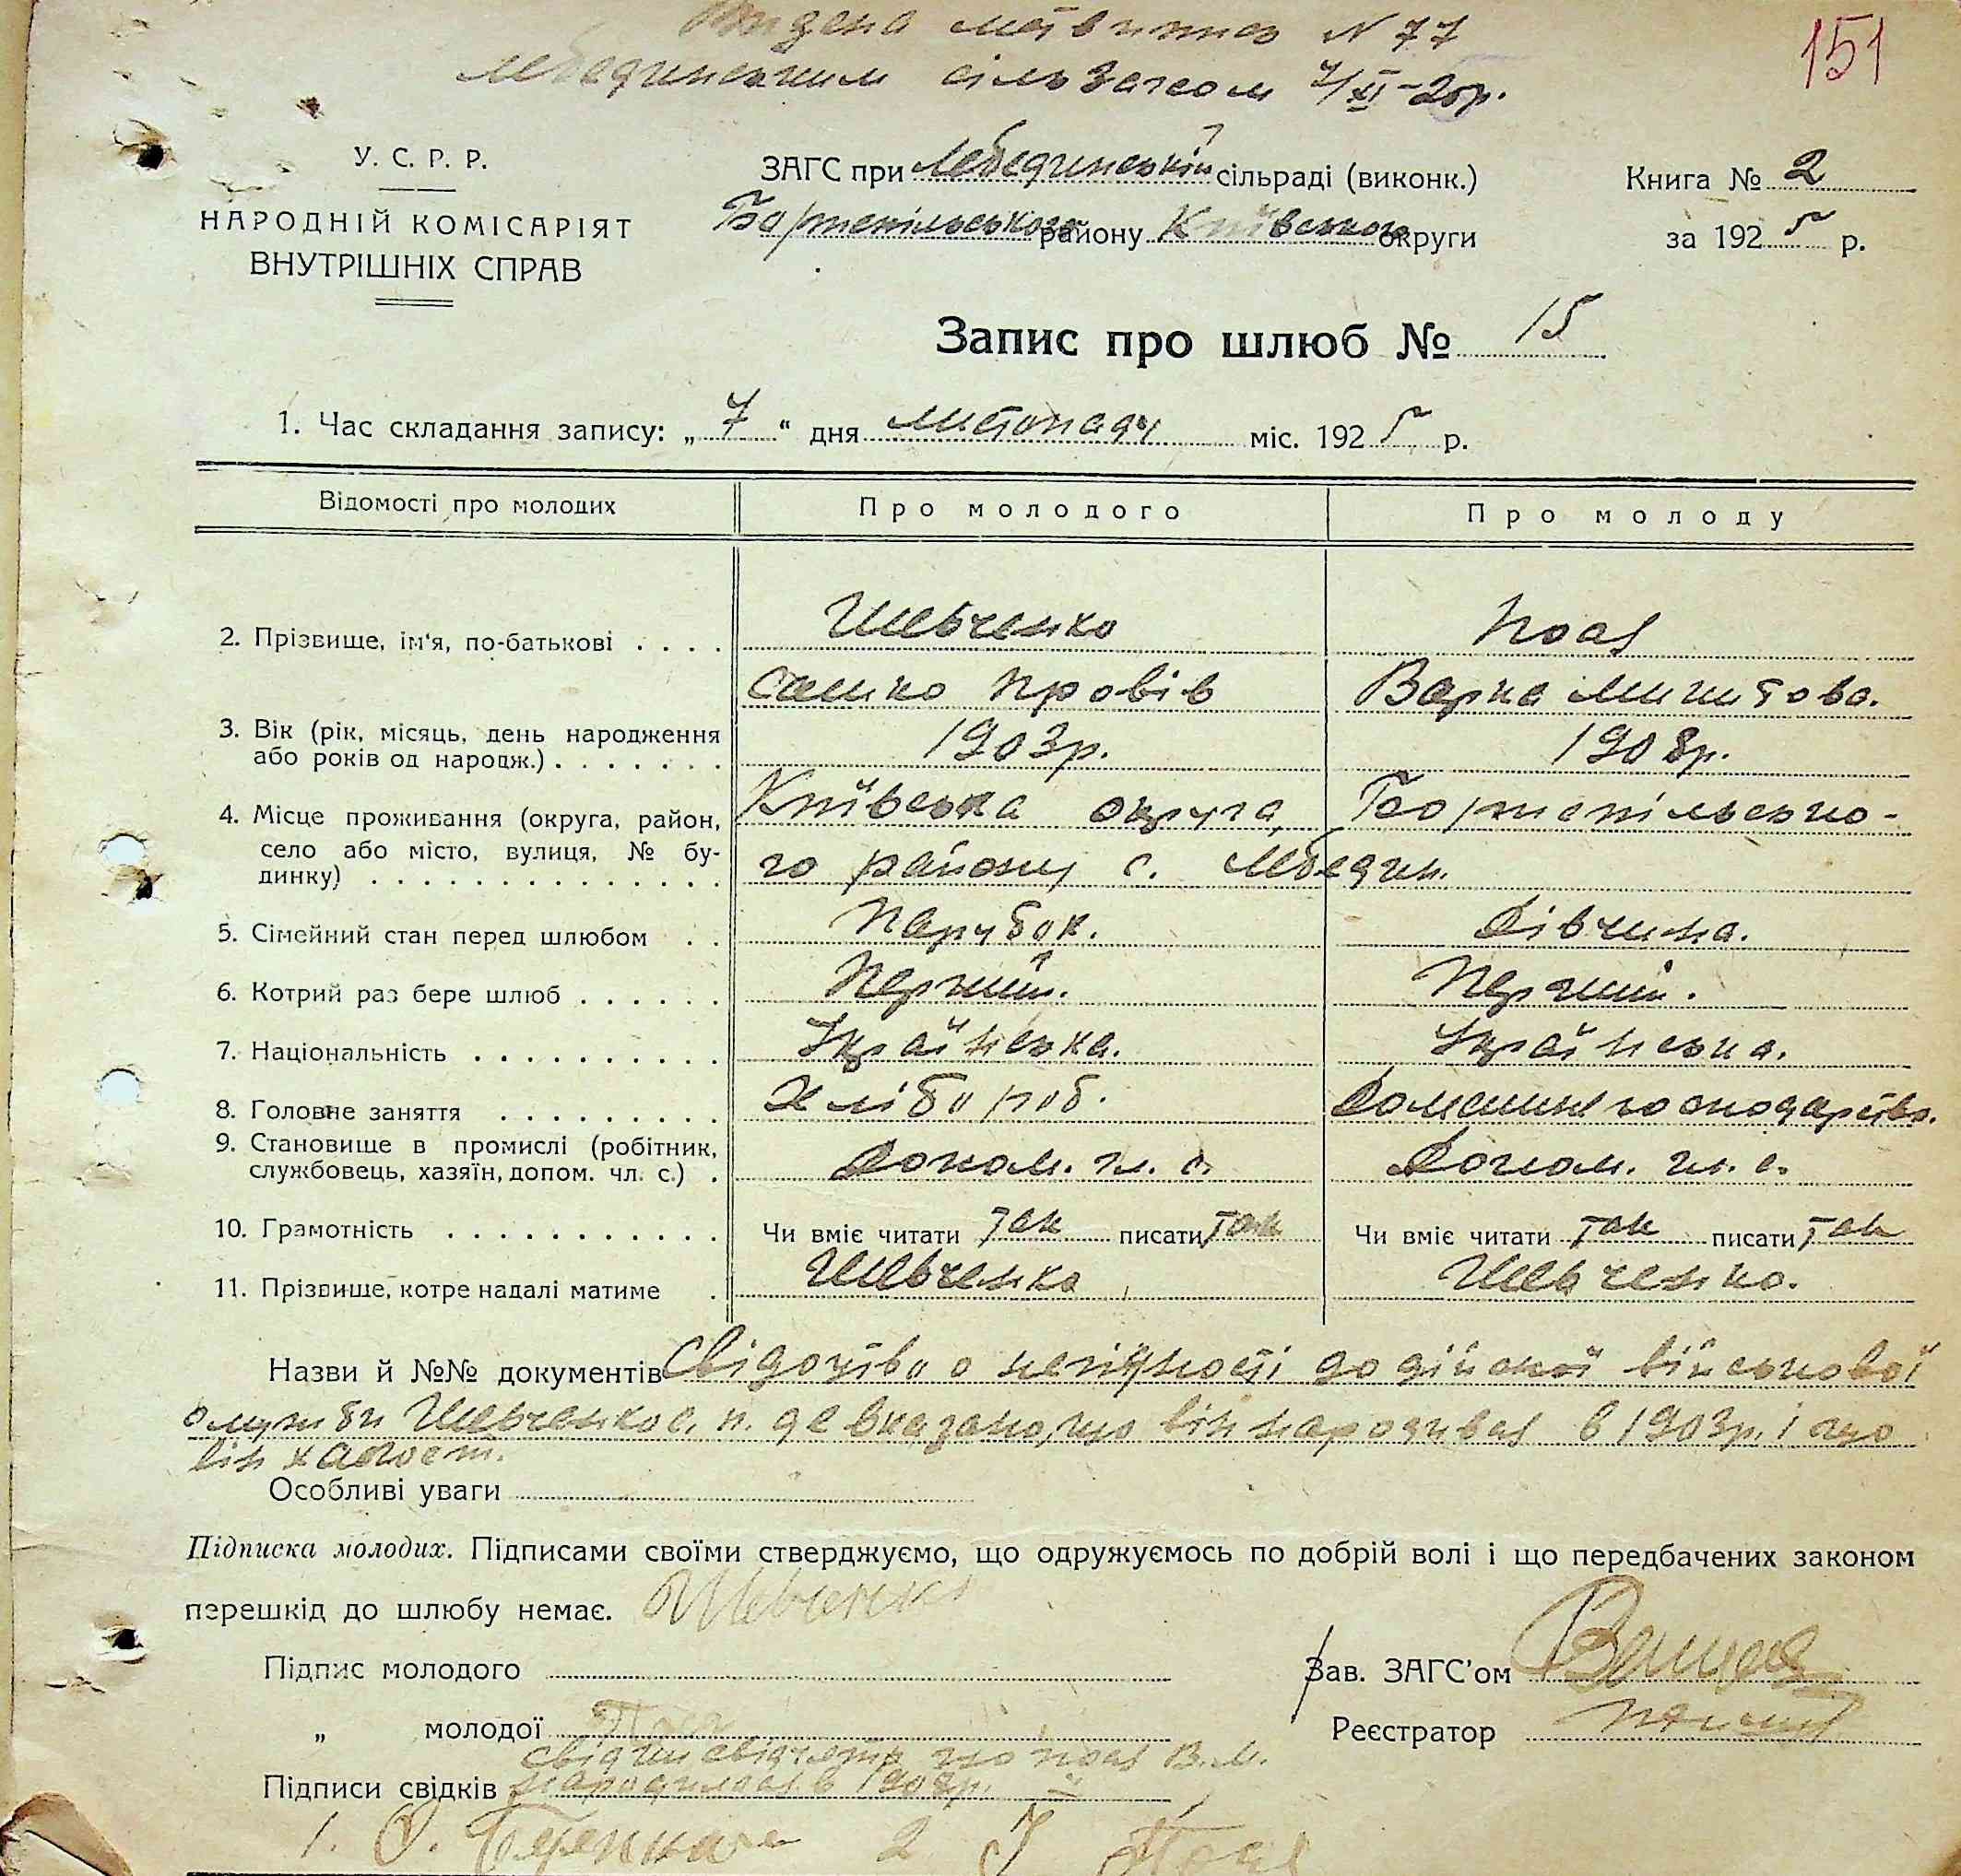 Видана метвипись N 77
Лебединським сільзагсом 7/XI-25р.
151
У. С. Р. Р.
НАРОДНІЙ КОМІСАРІЯТ
ВНУТРІШНІХ СПРАВ
ЗАГС при Лебединській сільраді (виконк.)
Бориспільського району Київської округи
Книга № 2
за 1925 р.
Запис про шлюб № 15
1. Час складання запису: „7“ дня листопада міс. 1925 р.
Відомості про молодих Про молодого Про молоду
2. Прізвище, ім'я, по-батькові . . . . Шевченко Поля
Сашко Провів Варка Микитова.
3. Вік (рік, місяць, день народження або років од народж.) . . . . . . . 1903р. 1908р.
4. Місце проживання (округа, район, село або місто, вулиця, № будинку) . . . . . . . . . . . . . . Київська округа, Бориспільсько-
го району с. Лебедин.
5. Сімейний стан перед шлюбом . . Парубок. Дівчина.
6. Котрий раз бере шлюб . . . . . . Перший. Перший.
7. Національність . . . . . . . . . . Українська. Українська.
8. Головне заняття . . . . . . . . . Хлібороб. Домашнє господарство.
9. Становище в промислі (робітник, службовець, хазяїн, допом. чл. с.) . Допом. чл. с. Допом. чл. с.
10. Грамотність . . . . . . . . . . . . Чи вміє читати так писати так Чи вміє читати так писати так
11. Прізвище, котре надалі матиме . Шевченко Шевченко.
Назви й №№ документів Свідоцтво о негідності до дійсної військової
служби Шевченко С. П. де вказано, що він народивсь в 1903р. і що
він холост.
Особливі уваги
Підписка молодих. Підписами своїми стверджуємо, що одружуємось по добрій волі і що передбачених законом
перешкід до шлюбу немає. Шевченко
Підпис молодого
Зав. ЗАГС'ом
„ молодої
Реєстратор
свідки свідчать що В. М.
Підписи свідків народилась в 1908р.
1. О. 2 І